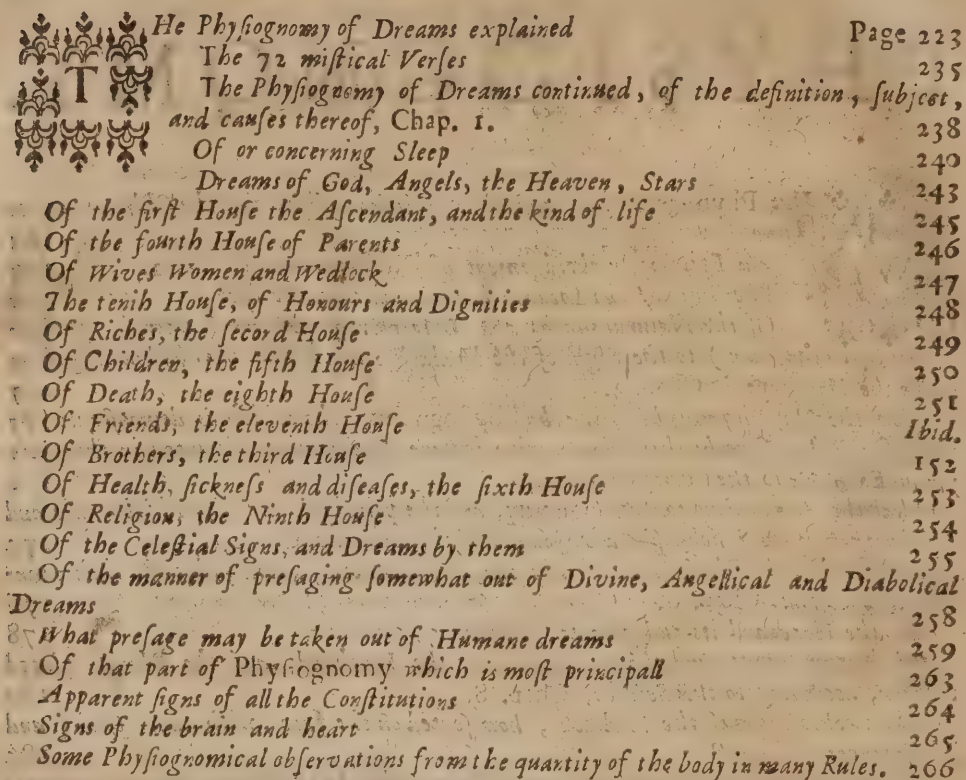 THe Phyſiognomy of Dreams explained Page 223
The 72 miſtical Verſes 235
The Phyſiognomy of Dreams continued, of the definition, ſubject,
and cauſes thereof, Chap. 1. 238
Of or concerning Sleep 240
Dreams of God, Angels, the Heaven, Stars 243
Of the firſt Houſe the Aſcendant, and the kind of life 245
Of the fourth Houſe of Parents 246
Of Wives Women and Wedlock 247
The tenth Houſe, of Honours and Dignities 248
Of Riches, the ſecond Houſe 249
Of Children, the fifth Houſe 250
Of Death, the eighth Houſe 251
Of Friends, the eleventh Houſe Ibid.
Of Brothers, the third Houſe 152
Of Health, ſickneſs and diſeaſes, the ſixth Houſe 253
Of Religion, the Ninth Houſe 254
Of the Celeſtial Signs, and Dreams by them 255
Of the manner of preſaging ſomewhat out of Divine, Angellical and Diabolical
Dreams 258
What preſage may be taken out of Humane dreams 259
Of that part of Phyſiognomy which is moſt principall 263
Apparent ſigns of all the Conſtitutions 264
Signs of the brain and heart 265
Some Phyſiognomical obſervations from the quantity of the body in many Rules. 266